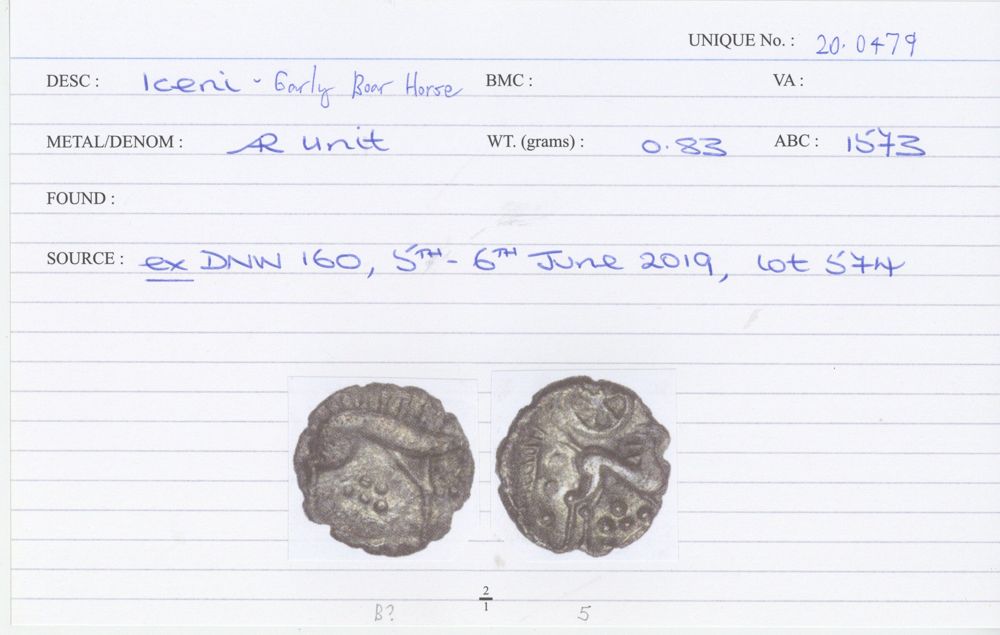 UNIQUE No. : 20.0479
DESC : Iceni - Early Boar Horse BMC : VA :
METAL/DENOM : AR Unit WT. (grams) : 0.83 ABC : 1573
FOUND :
SOURCE : ex DNW 160, 5TH - 6TH June 2019, lot 574
2
1
B? 5